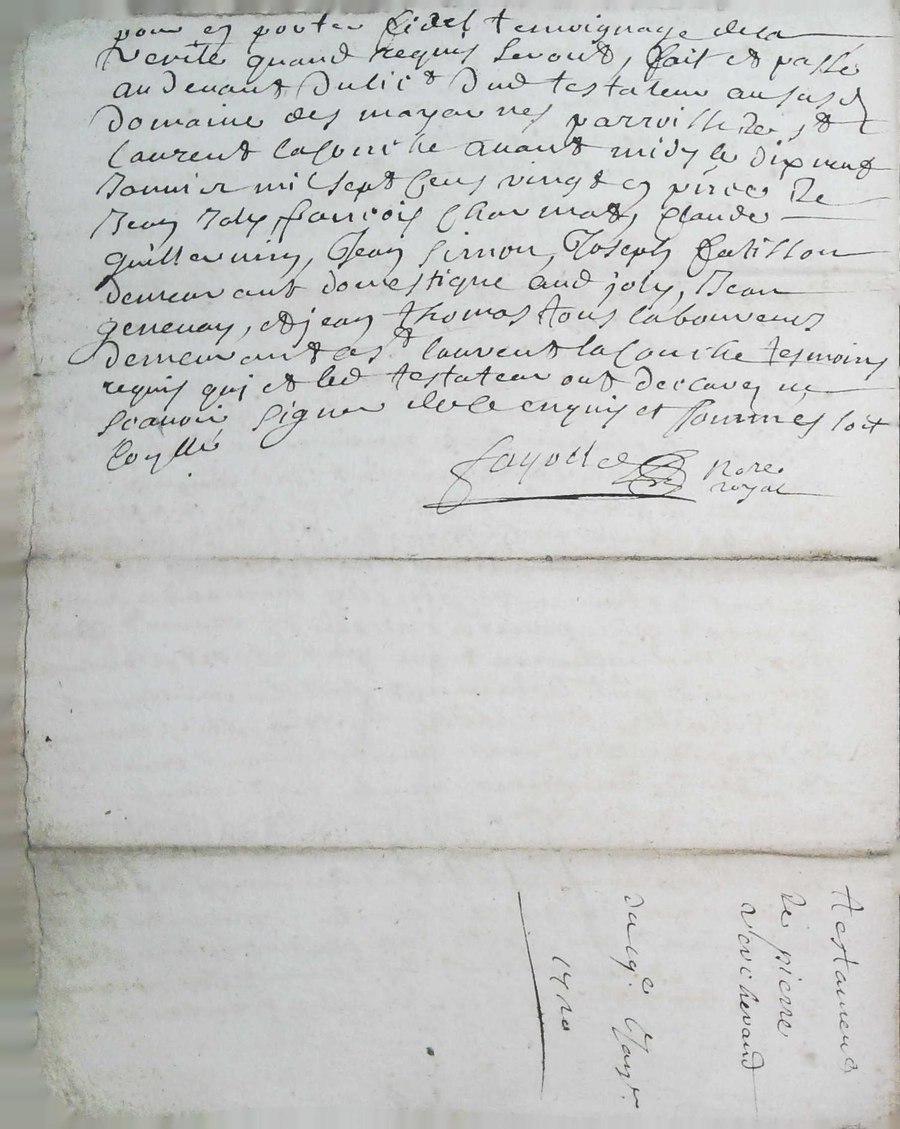 pour en porter fidel temoignage de la
verité quand requis seront, fait et passé
au devant du lict dud testateur au susd
domaine des mayannes parroisse de st
laurent laconche avant midy le dix neuf
Janvier mil sept cens vingt en pnce de
Jean Joly, francois Charmat, Claude
guillermin, Jean Simon, Joseph
demeurant domestique aud joly, Jean
genevay, et jean thomas tous laboureurs
demeurant aud st laurent laconche tesmoins
requis qui et led testateur ont declarez ne
scavoir signer de ce enquis et sommes soit
Not.re
royal
testament
de pierre
du 19e Janv.
1720